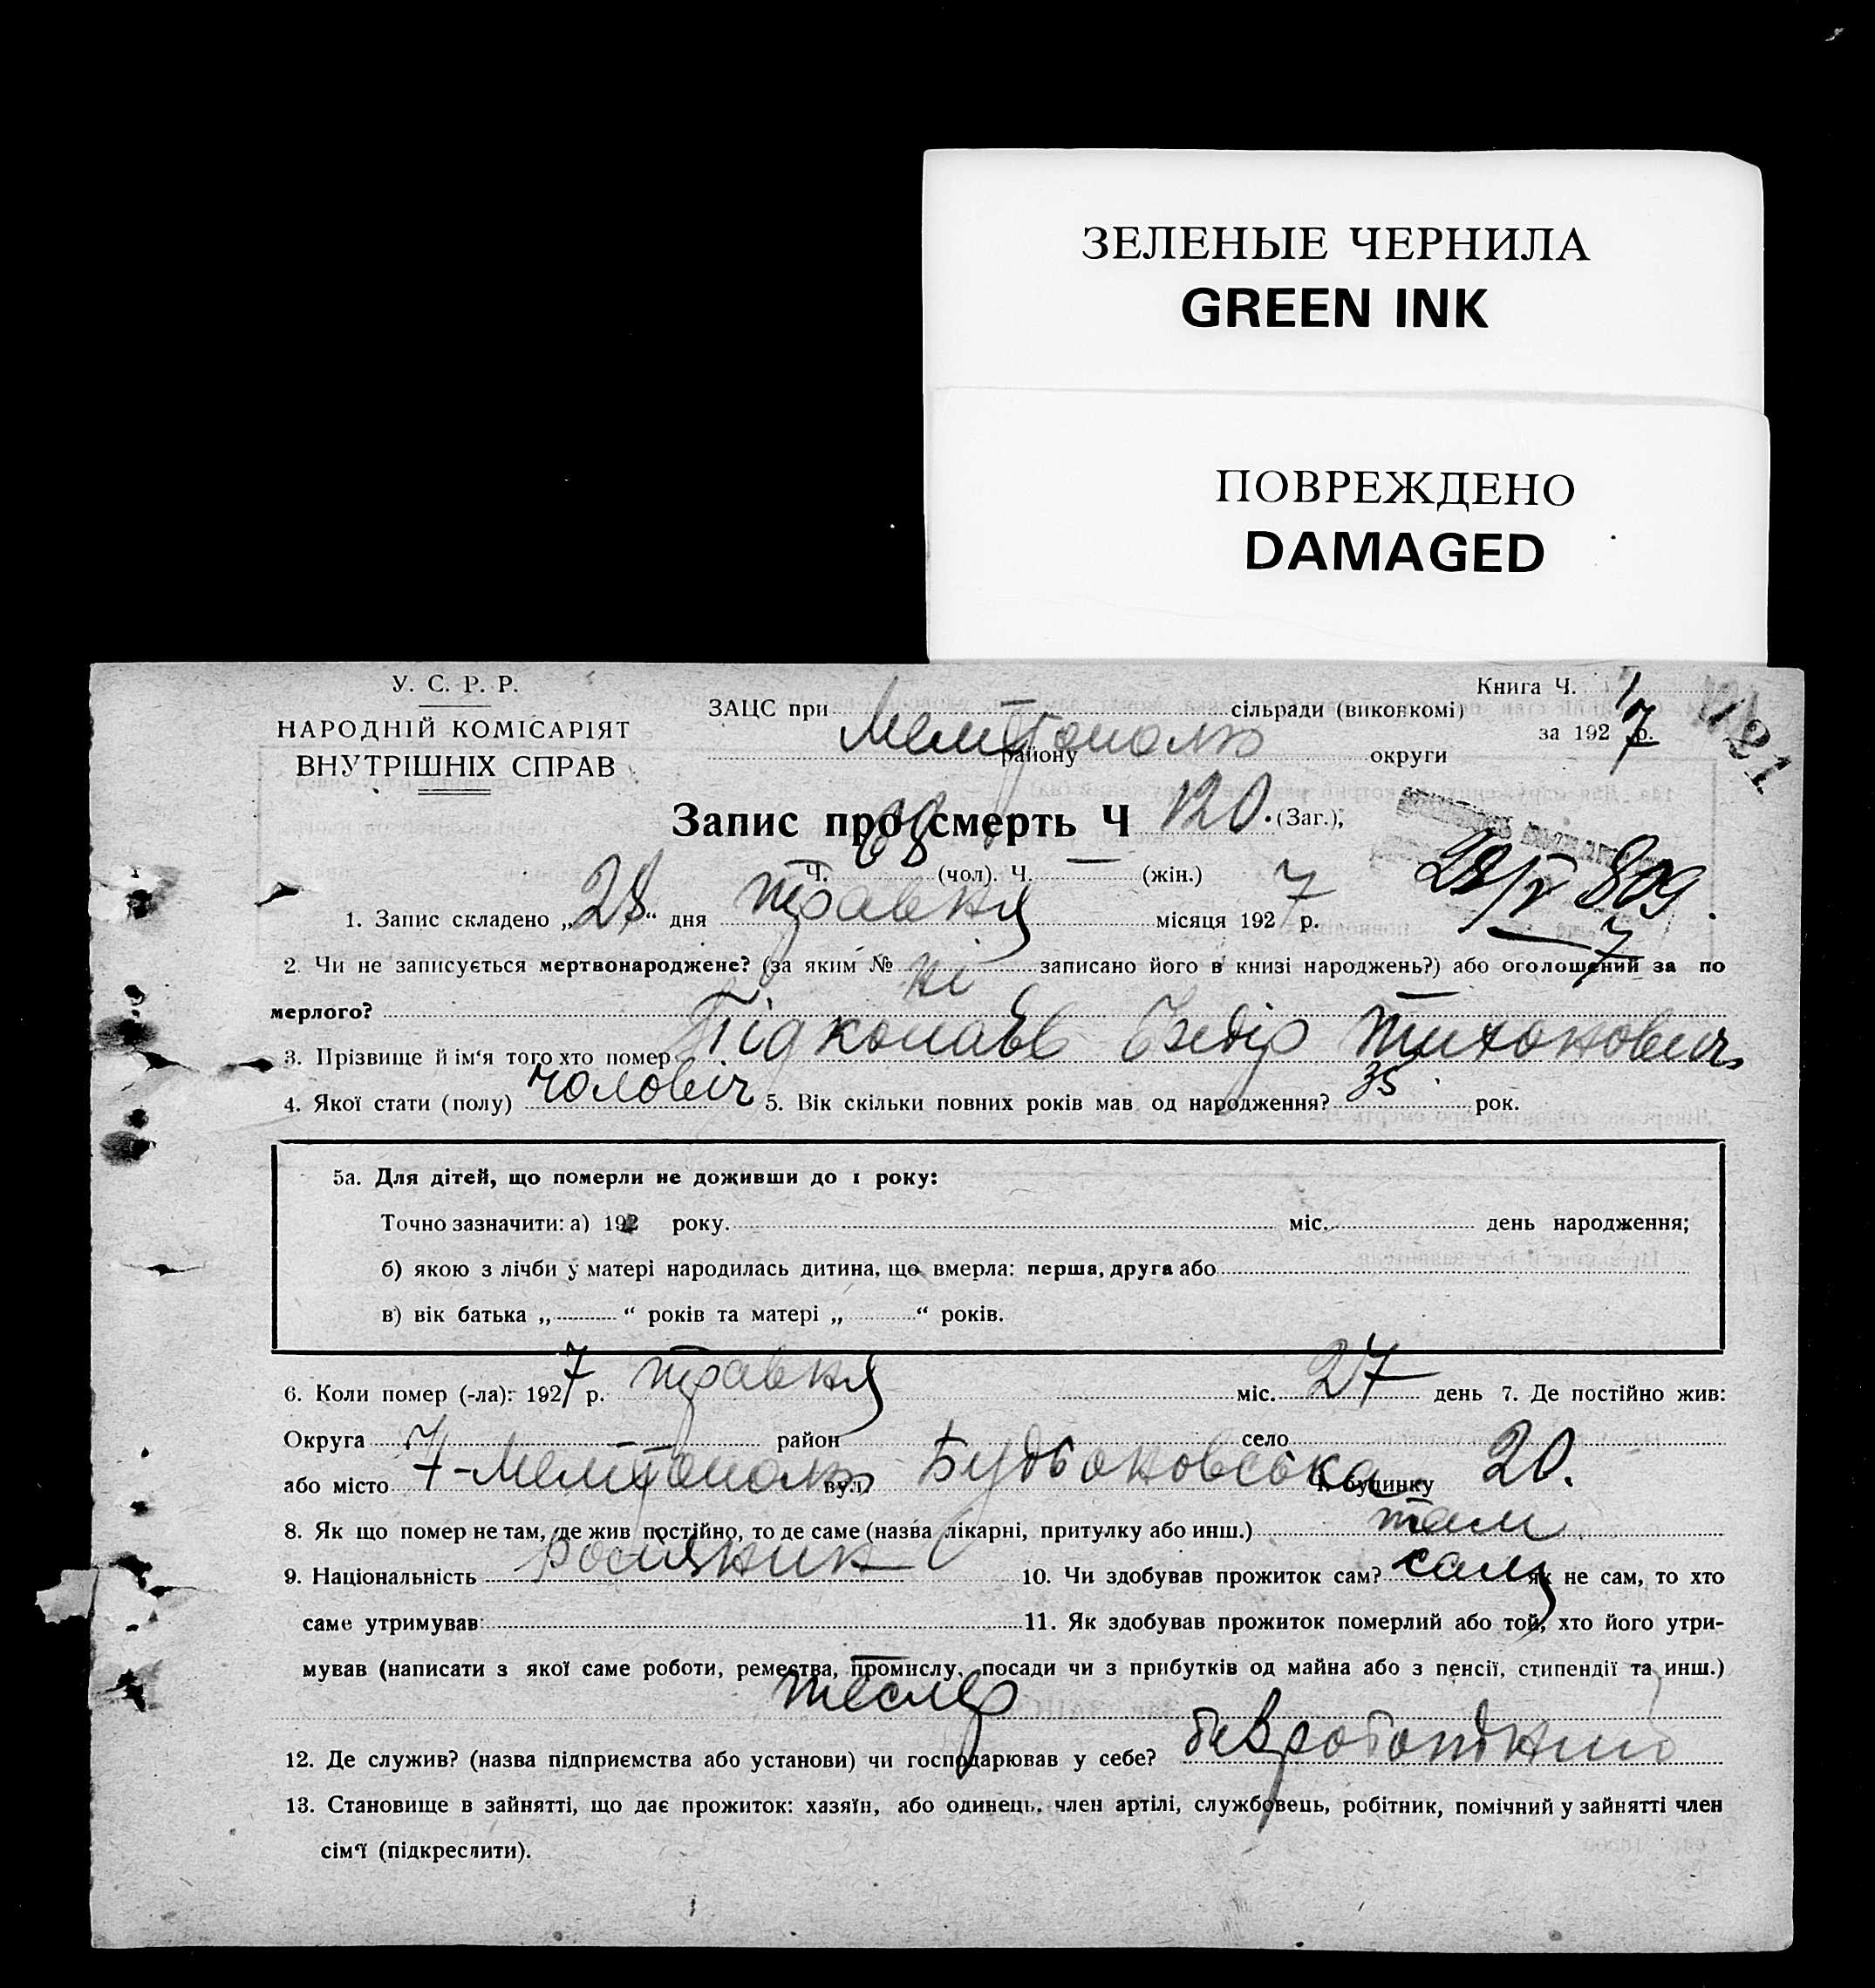 ЗЕЛЕНЫЕ ЧЕРНИЛА
GREEN INK
ПОВРЕЖДЕНО
DAMAGED
У. С. Р. Р.
НАРОДНІЙ КОМІСАРІЯТ
ВНУТРІШНІХ СПРАВ
Книга Ч. 1
за 1927 р.
121
ЗАЦС при сільради (виконкомі)
Мелітополь
району округи
Запис про смерть Ч 120. (Заг.),
Ч. 68 (чол). Ч. — (жін.)
28/V 809.
7
1. Запис складено „28“ дня травня місяця 1927 р.
2. Чи не записується мертвонароджене? (за яким № ні записано його в книзі народжень?) або оголошений за по
мерлого? —
3. Прізвище й ім'я того хто помер Підкопаєв Федір Тихонович
4. Якої стати (полу) чоловіч 5. Вік скільки повних років мав од народження? 35 рок.
5а. Для дітей, що померли не доживши до 1 року:
Точно зазначити: а) 192 року. міс. день народження;
б) якою з лічби у матері народилась дитина, що вмерла: перша, друга або
в) вік батька „ “ років та матері „ “ років.
6. Коли помер (-ла): 1927 р. травня міс. 27 день 7. Де постійно жив:
Округа район село
або місто Мелітополь вул. Будьоновська Ч. будинку 20.
8. Як що помер не там, де жив постійно, то де саме (назва лікарні, притулку або инш.) там
9. Національність 10. Чи здобував прожиток сам? сам як не сам, то хто
саме утримував 11. Як здобував прожиток померлий або той, хто його утри-
мував (написати з якої саме роботи, ремества, промислу, посади чи з прибутків од майна або з пенсії, стипендії та инш.)
тесляр
12. Де служив? (назва підприємства або установи) чи господарював у себе?
13. Становище в зайнятті, що дає прожиток: хазяїн, або одинець, член артілі, службовець, робітник, помічний у зайнятті член
сім'ї (підкреслити).